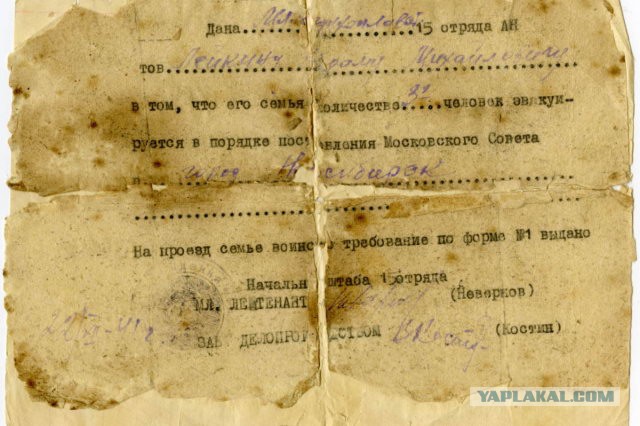 Дана 15 отряда АН
тов. Михайловичу
в том, что его семья количестве человек эвакуи-
руется в порядке пос новления Московского Совета
в город Новосибирск
На проезд семье воинско требование по форме №1 выдано
Начальн штаба 15отряда
МЛ. ЛЕЙТЕНАНТ (Неверков)
ЗАВ ДЕЛОПРОИ ДСТВОМ (Костин)
YAPLAKAL.COM